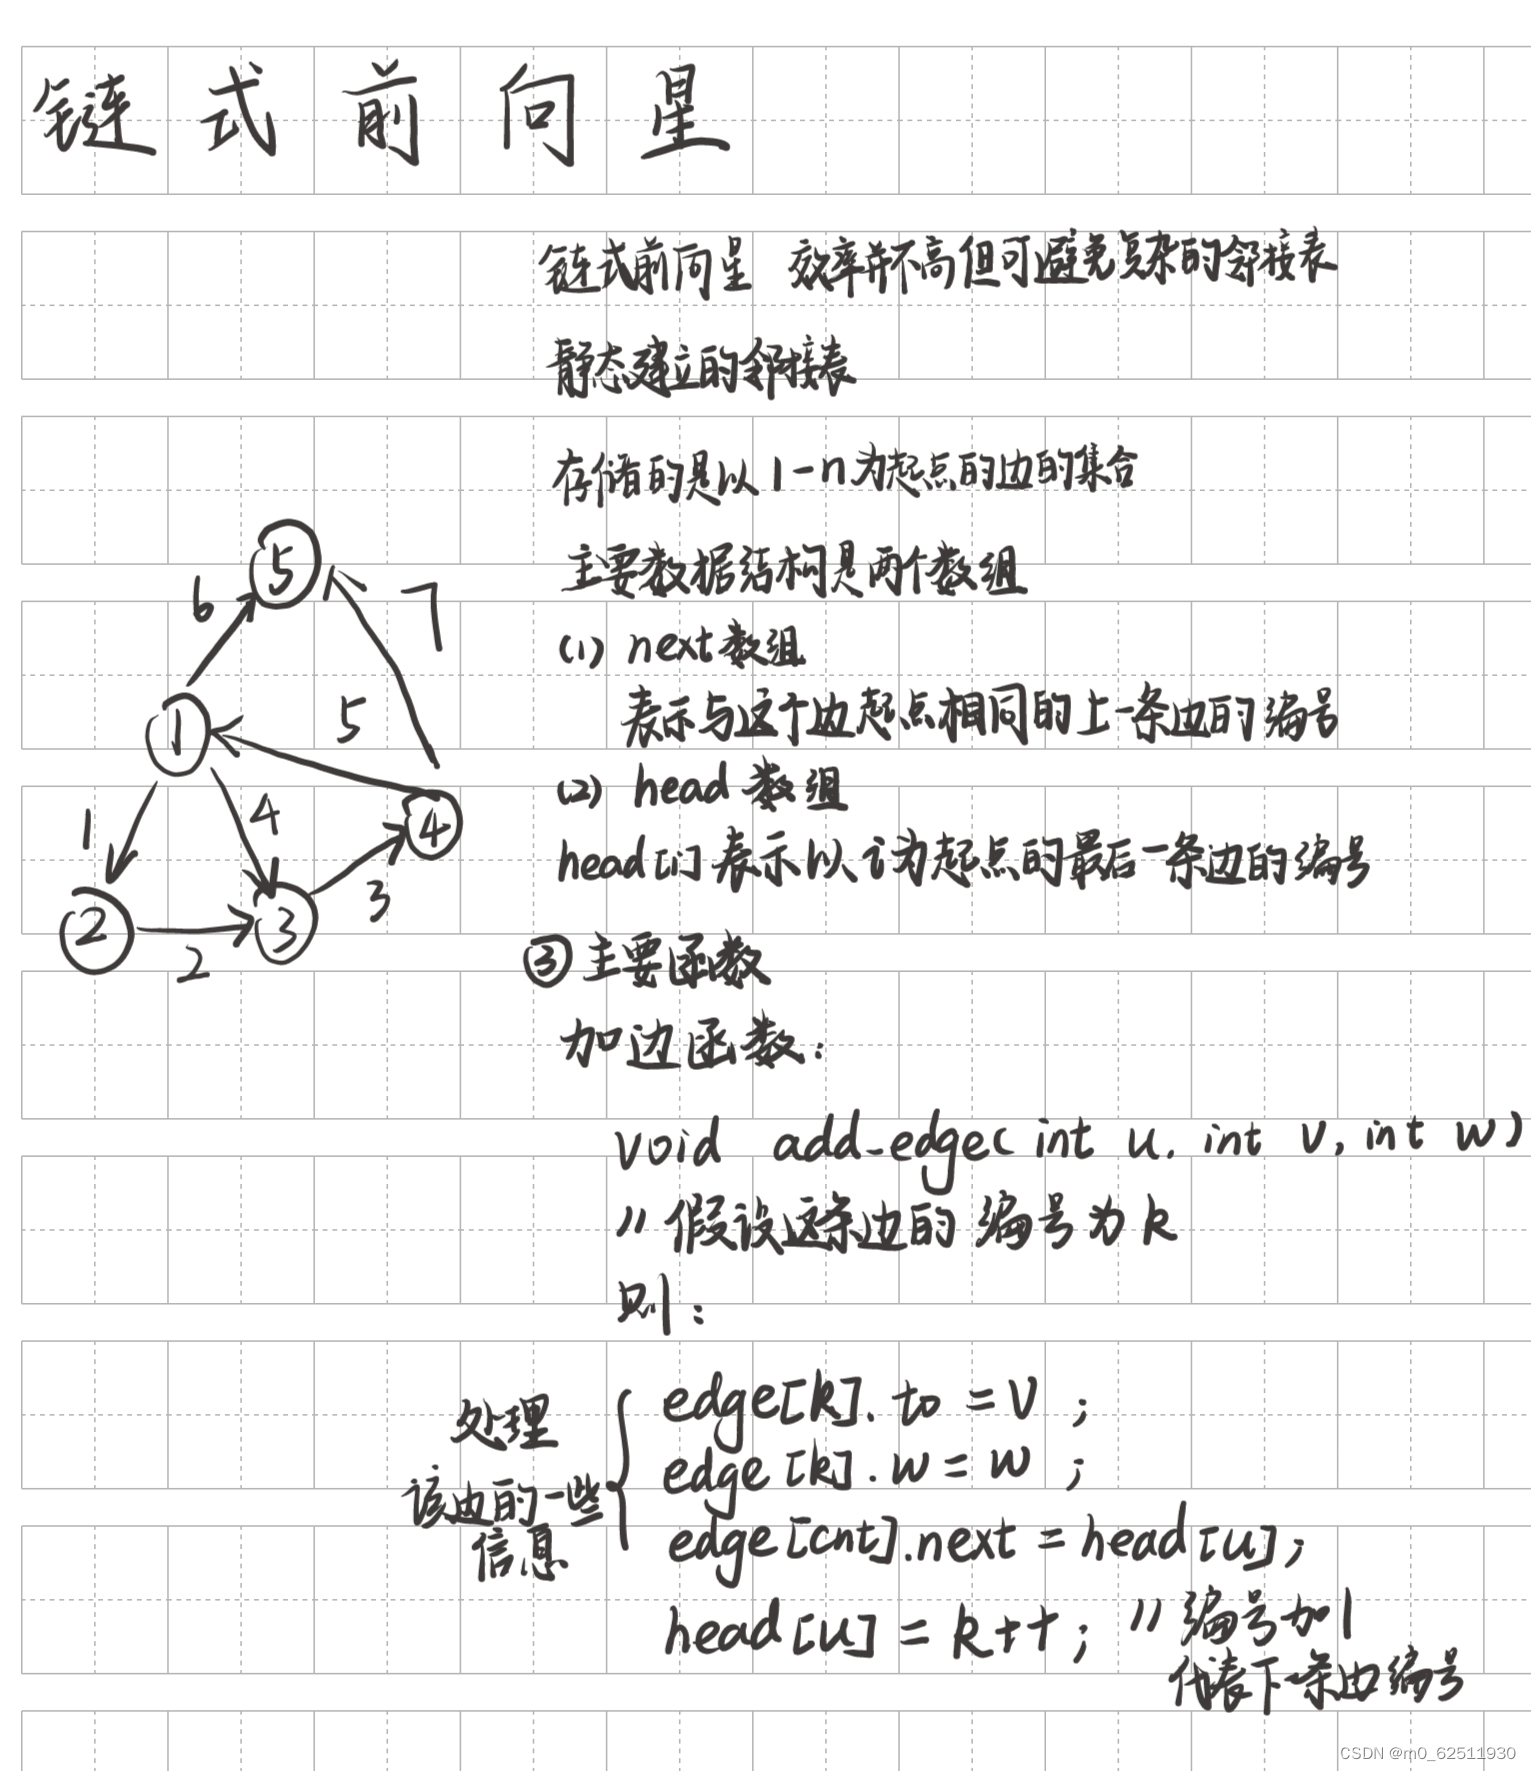 链式前向星
链式前向星 效率并不高但可避免复杂的邻接表
静态建立的邻接表
存储的是以1-n为起点的边的集合
主要数据结构是两个数组
(1) next数组
表示与这个边起点相同的上一条边的编号
(2) head数组
head[i]表示以i为起点的最后一条边的编号
5
6
7
1
5
1
4
4
2
3
3
2
③主要函数
加边函数:
void add_edge(int u, int v, int w)
// 假设这条边的编号为k
则:
处理
该边的一些
信息
edge[k].to = v ;
edge[k].w = w ;
edge[cnt].next = head[u];
head[u] = k++; // 编号加1
代表下一条边编号
CSDN @m0_62511930